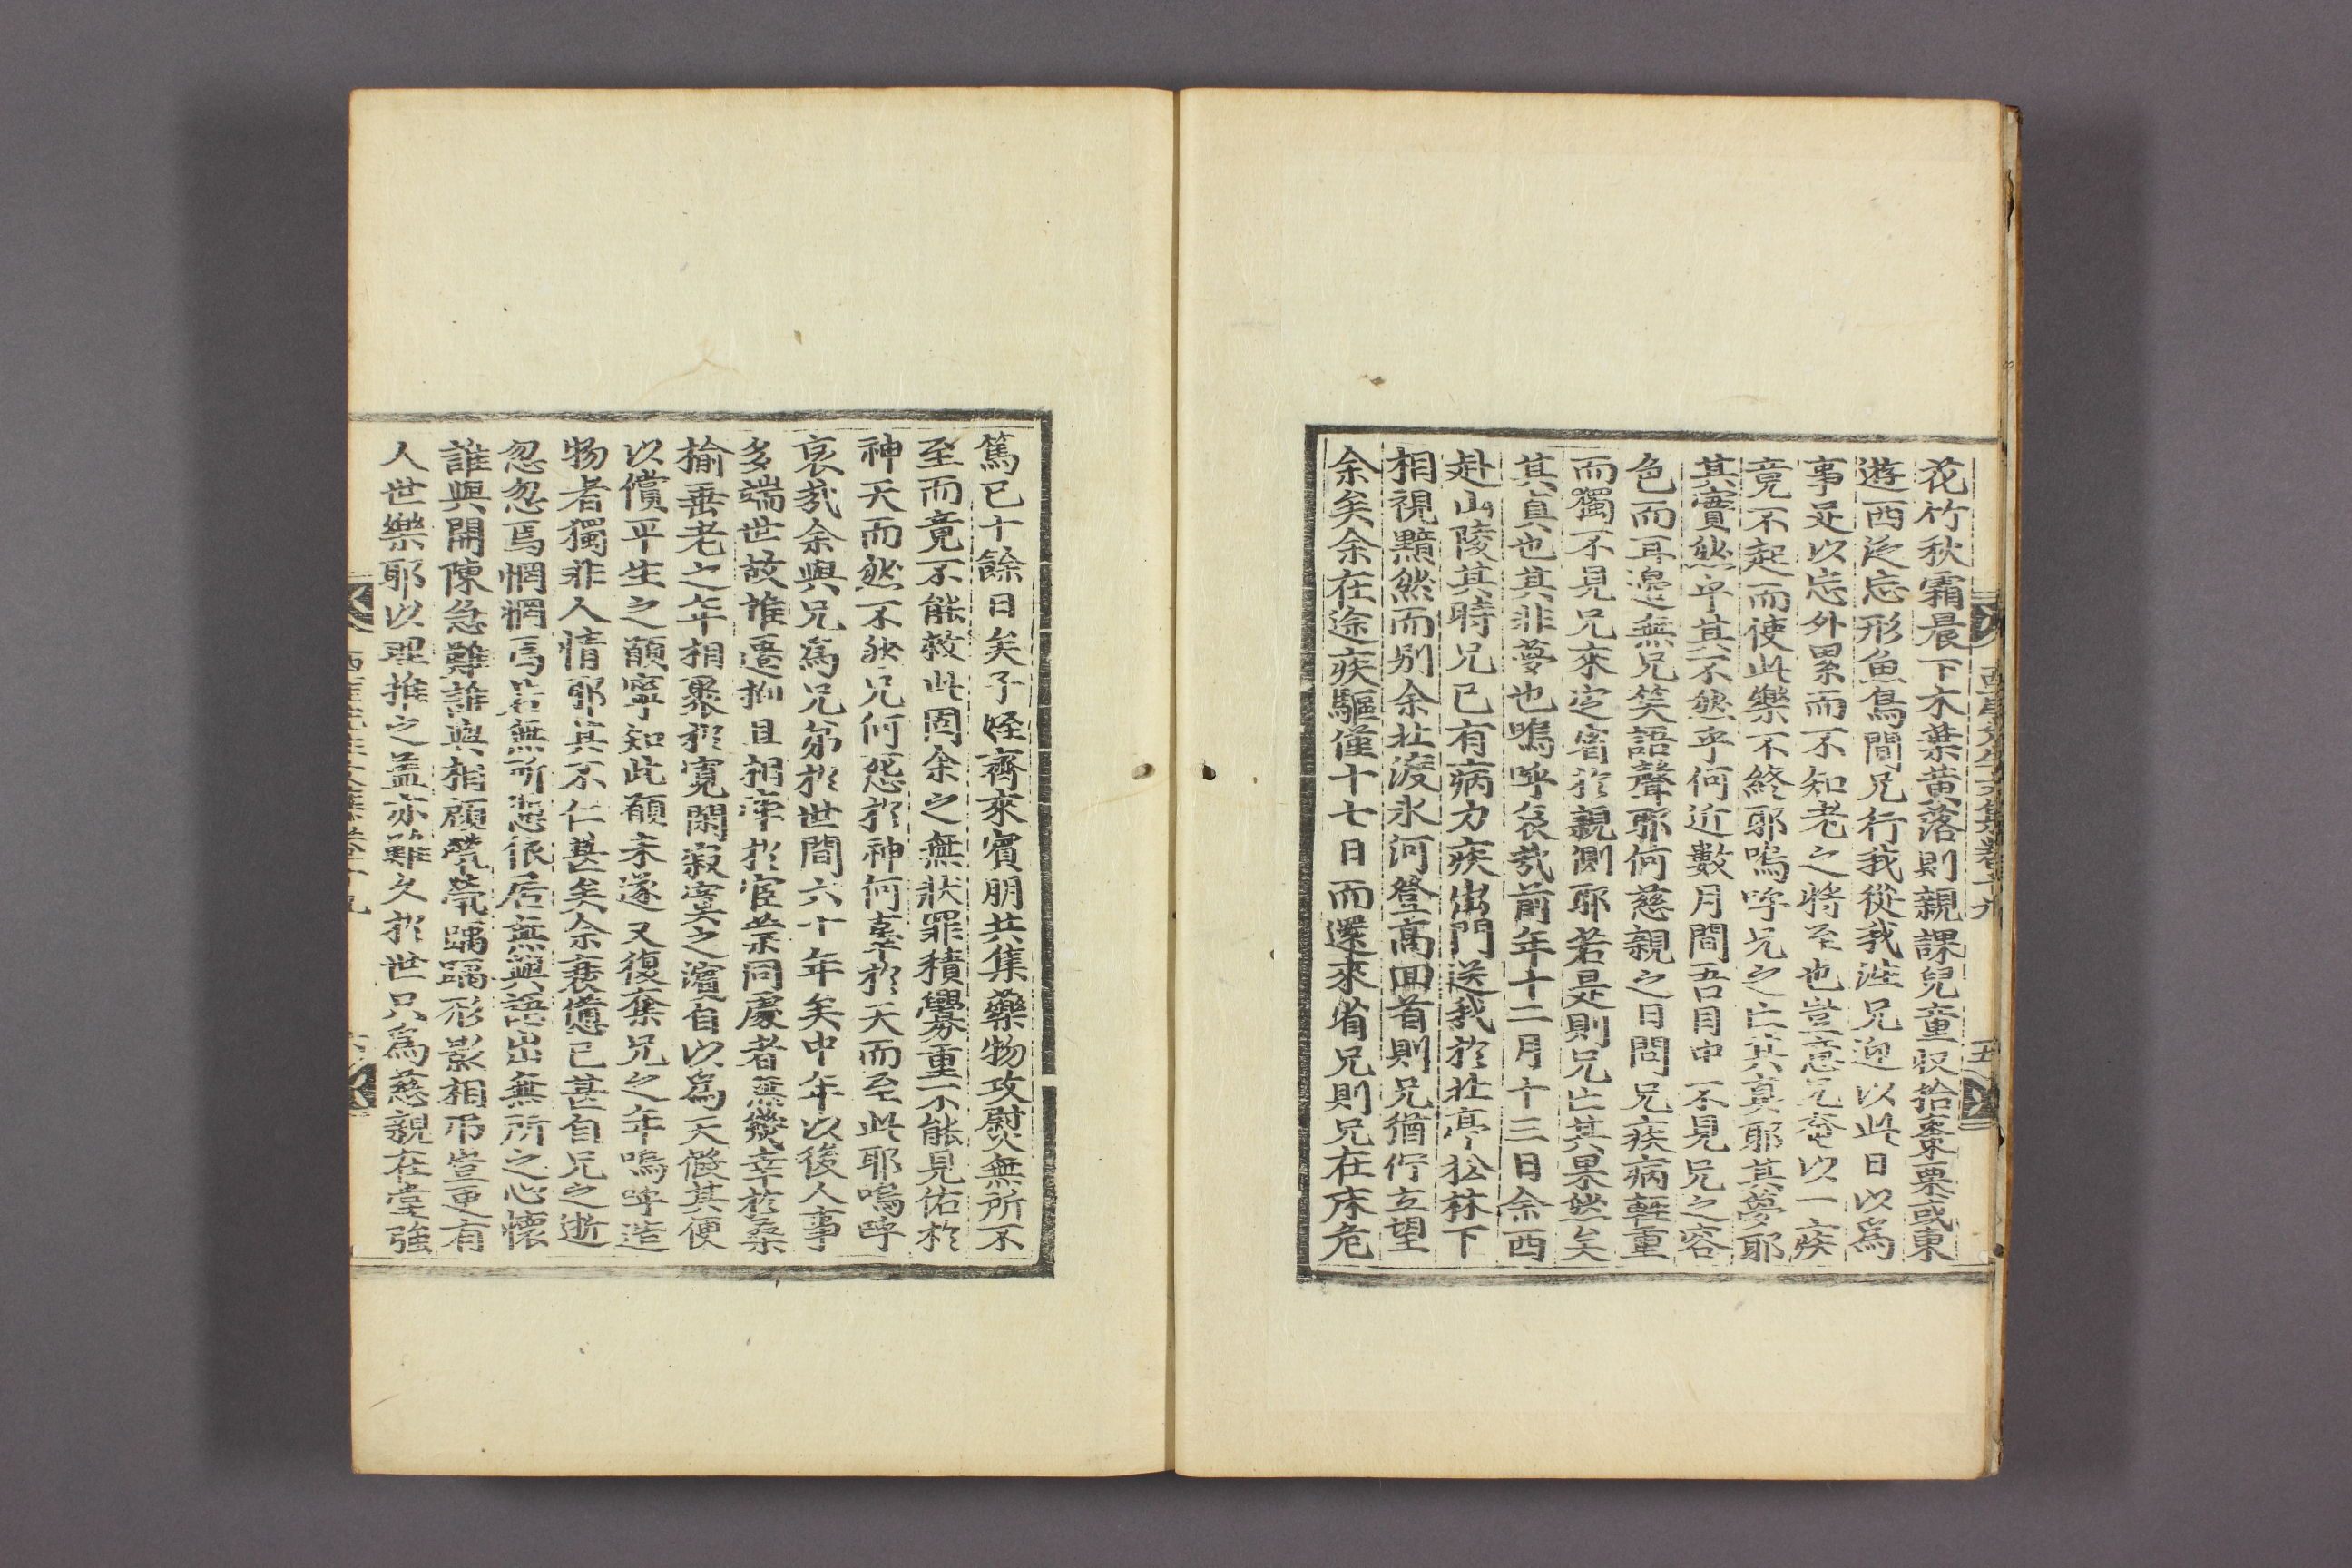 花竹秋霜晨下木葉黄落則親課兒童収拾棗栗或東
遊西泛忘形魚鳥間兄行我從我涖兄迎以此日以爲
事足以忘外累而不知老之將至也豈意兄奄以一疾
竟不起而使此樂不終耶嗚呼兄之亡其真耶其夢耶
其實然乎其不然乎何近數月間吾目中不見兄之容
色而耳邊無兄笑語聲耶何慈親之日問兄疾病輕重
而獨不見兄來定省於親側耶若是則兄亡其果然矣
其真也其非夢也嗚呼哀哉前年十二月十三日余西
赴山陵其時兄已有病力疾出門送我於北亭松林下
相視黯然而別余北渡氷河登高回首則兄猶佇立望
余矣余在途疾驅僅十七日而還來省兄則兄在床危
篤已十餘日矣子姪齊來賓朋共集藥物攻熨無所不
至而竟不能救此固余之無狀罪積釁重不能見佑於
神天而然不然兄何怨於神何辜於天而至此耶嗚呼
哀哉余與兄爲兄弟於世間六十年矣中年以後人事
多端世故推遷捌且相牽於宦業同處者無幾幸於桑
榆垂老之年相聚於寬閑寂寞之濱自以爲天假其便
以償平生之願寧知此願未遂又復奪兄之年嗚呼造
物者獨非人情耶其不仁甚矣余衰憊已甚自兄之逝
忽忽焉惘惘焉若無所慿依居無與語出無所之心懷
誰與開陳急難誰與相顧煢煢踽踽形影相吊豈更有
人世樂耶以理推之盖亦難久於世只爲慈親在堂強